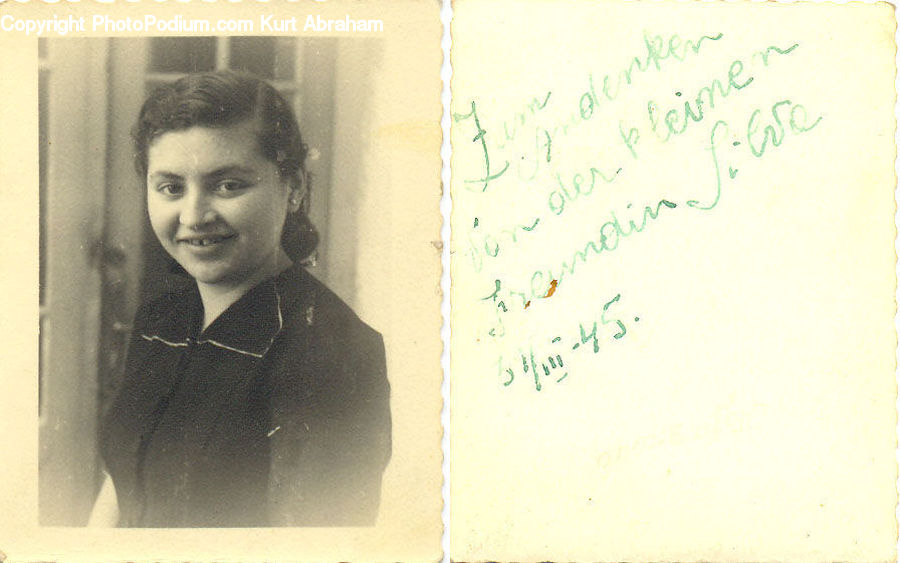 Copyright PhotoPodium.com Kurt Abraham
Zum Andenken
von der kleinen
Freundin Silva
III.45.